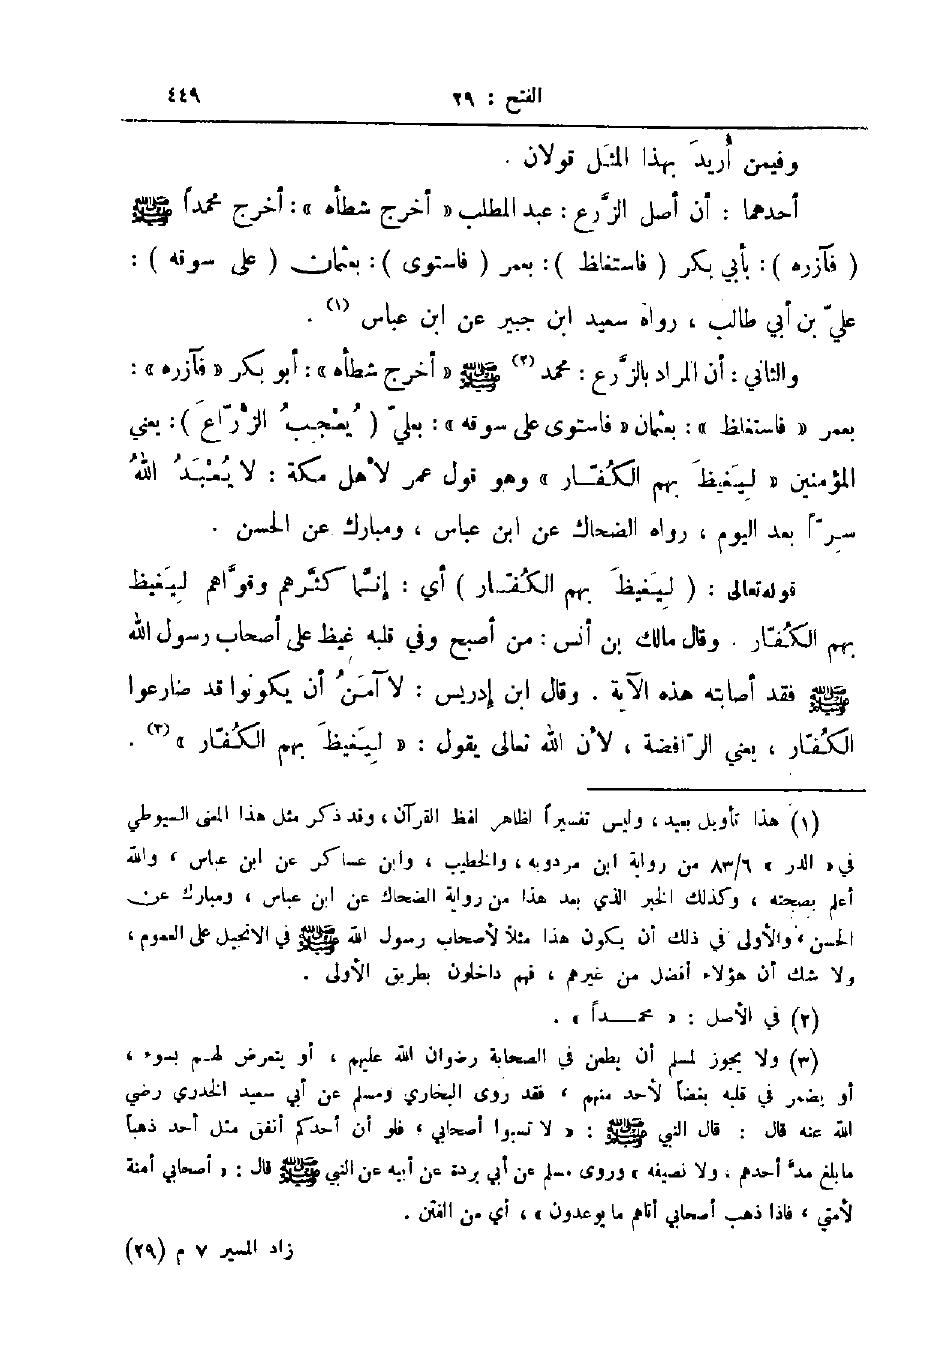 الفتح : ٢٩ ٤٤٩
وفيمن أُريدَ بهذا المثَل قولان .
أحدهما : أن أصل الزَّرع : عبد المطلب « أخرج شطأه » : أخرج محمداً ﷺ
( فآزره ) : بأبي بكر ( فاستغلظ ) : بعمر ( فاستوى ) : بعثمان ( على سوقه ) :
عليّ بن أبي طالب ، رواه سعيد ابن جبير عن ابن عباس (١) .
والثاني : أن المراد بالزَّرع : محمد (٢) ﷺ « أخرج شطأه » : أبو بكر « فآزره » :
بعمر « فاستغلظ » : بعثمان « فاستوى على سوقه » : بعليّ ( يُعْجِبُ الزُّرّاعَ ) : يعني
المؤمنين « لِيَغيظَ بهم الكُفّار » وهو قول عمر لأهل مكة : لا يُعْبَدُ اللهُ
سِرّاً بعد اليوم ، رواه الضحاك عن ابن عباس ، ومبارك عن الحسن .
قوله تعالى : ( لِيَغيظَ بهم الكُفّار ) أي : إنَّما كثَّرهم وقوَّاهم لِيَغيظ
بهم الكُفّار . وقال مالك بن أنس : من أصبح وفي قلبه غيظ على أصحاب رسول الله
ﷺ فقد أصابته هذه الآية . وقال ابن إدريس : لا آمَنُ أن يكونوا قد ضارعوا
الكُفّار ، يعني الرّافضة ، لأن الله تعالى يقول : « لِيَغيظَ بهم الكُفّار » (٣) .
(١) هذا تأويل بعيد ، وليس تفسيراً لظاهر لفظ القرآن ، وقد ذكر مثل هذا المعنى السيوطي
في « الدر » ٨٣/٦ من رواية ابن مردويه ، والخطيب ، وابن عساكر عن ابن عباس ، والله
أعلم بصحته ، وكذلك الخبر الذي بعد هذا من رواية الضحاك عن ابن عباس ، ومبارك عن
الحسن ، والأولى في ذلك أن يكون هذا مثلاً لأصحاب رسول الله ﷺ في الانجيل على العموم ،
ولا شك أن هؤلاء أفضل من غيرهم ، فهم داخلون بطريق الأولى .
(٢) في الأصل : « محمداً » .
(٣) ولا يجوز لمسلم أن يطعن في الصحابة رضوان الله عليهم ، أو يتعرض لهم بسوء ،
أو يضمر في قلبه بغضاً لأحد منهم ، فقد روى البخاري ومسلم عن أبي سعيد الخدري رضي
الله عنه قال : قال النبي ﷺ : « لا تسبوا أصحابي ، فلو أن أحدكم أنفق مثل أحد ذهباً
ما بلغ مدَّ أحدهم ، ولا نصيفه » وروى مسلم عن أبي بردة عن أبيه عن النبي ﷺ قال : « أصحابي أمنة
لأمتي ، فاذا ذهب أصحابي أتاهم ما يوعدون » ، أي من الفتن .
زاد المسير ٧ م (٢٩)